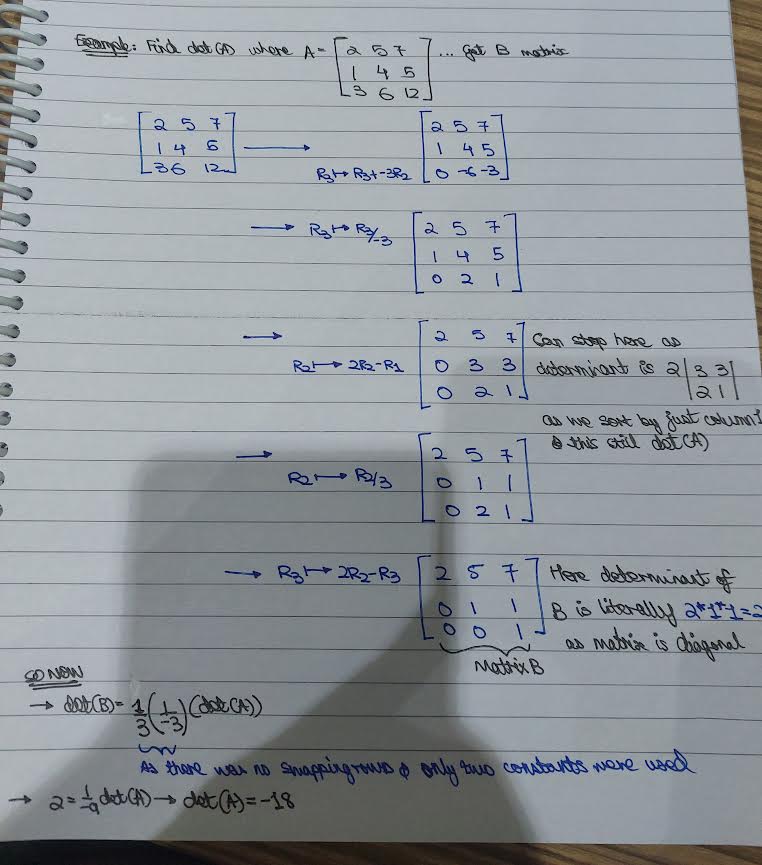 Example: Find det(A) where A = [2 5 7 ... Get B matrix
1 4 5
3 6 12]
[2 5 7
1 4 5
3 6 12] → R3 ↦ R3+-3R2 [2 5 7
1 4 5
0 -6 -3]
→ R3 ↦ R3/-3 [2 5 7
1 4 5
0 2 1]
→ R2 ↦ 2R2-R1 [2 5 7
0 3 3
0 2 1]
Can stop here as
determinant is 2 |3 3
2 1|
as we sort by just column 1
& this still det(A)
→ R2 ↦ R2/3 [2 5 7
0 1 1
0 2 1]
→ R3 ↦ 2R2-R3 [2 5 7
0 1 1
0 0 1]
Matrix B
Here determinant of
B is literally 2*1*1=2
as matrix is diagonal
SO NOW
→ det(B) = 1/3 (1/-3) (det(A))
As there was no swapping rows & only two constants were used
→ 2 = 1/-9 det(A) → det(A) = -18